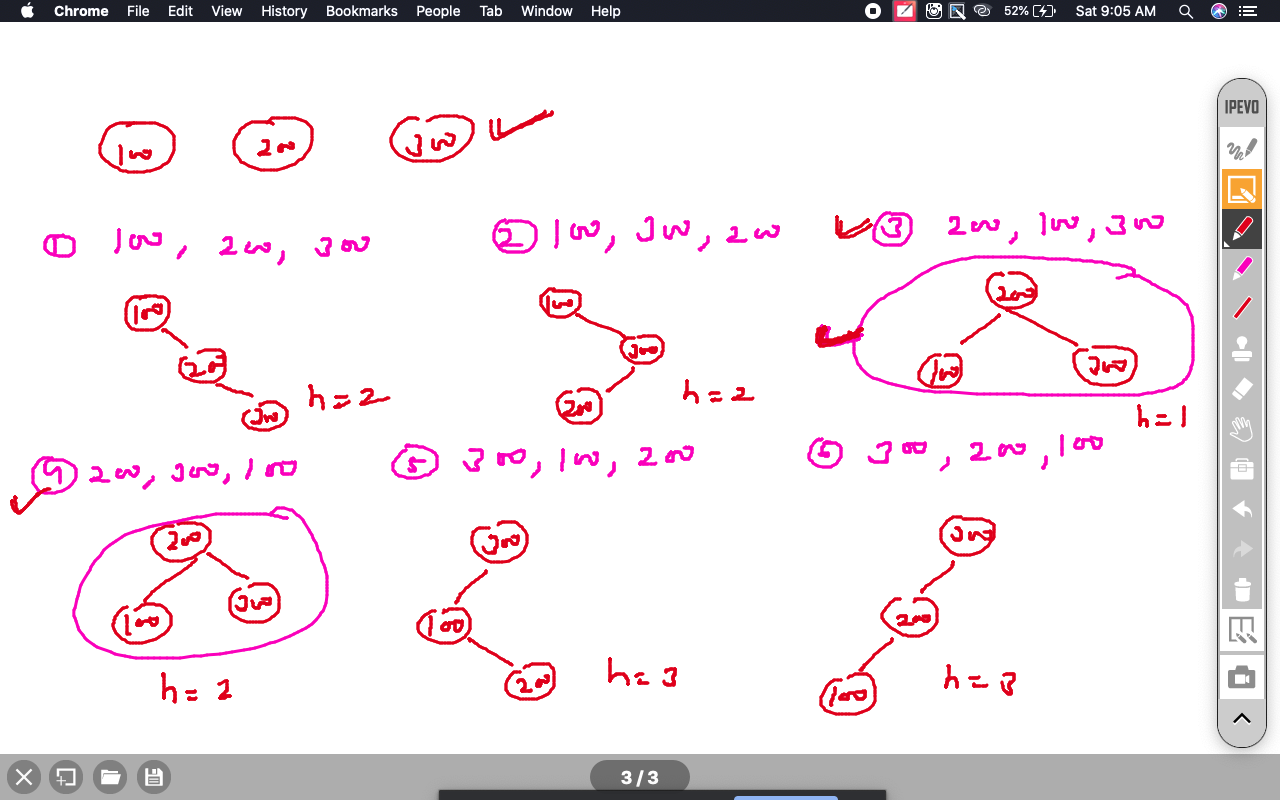 Chrome File Edit View History Bookmarks People Tab Window Help 52% Sat 9:05 AM
IPEVO
100 200 300
① 100, 200, 300
② 100, 300, 200
③ 200, 100, 300
100
200
300
h=2
100
300
200
h=2
200
100 300
h=1
④ 200, 300, 100
⑤ 300, 100, 200
⑥ 300, 200, 100
200
100 300
h=2
300
100
200
h=3
300
200
100
h=3
3/3